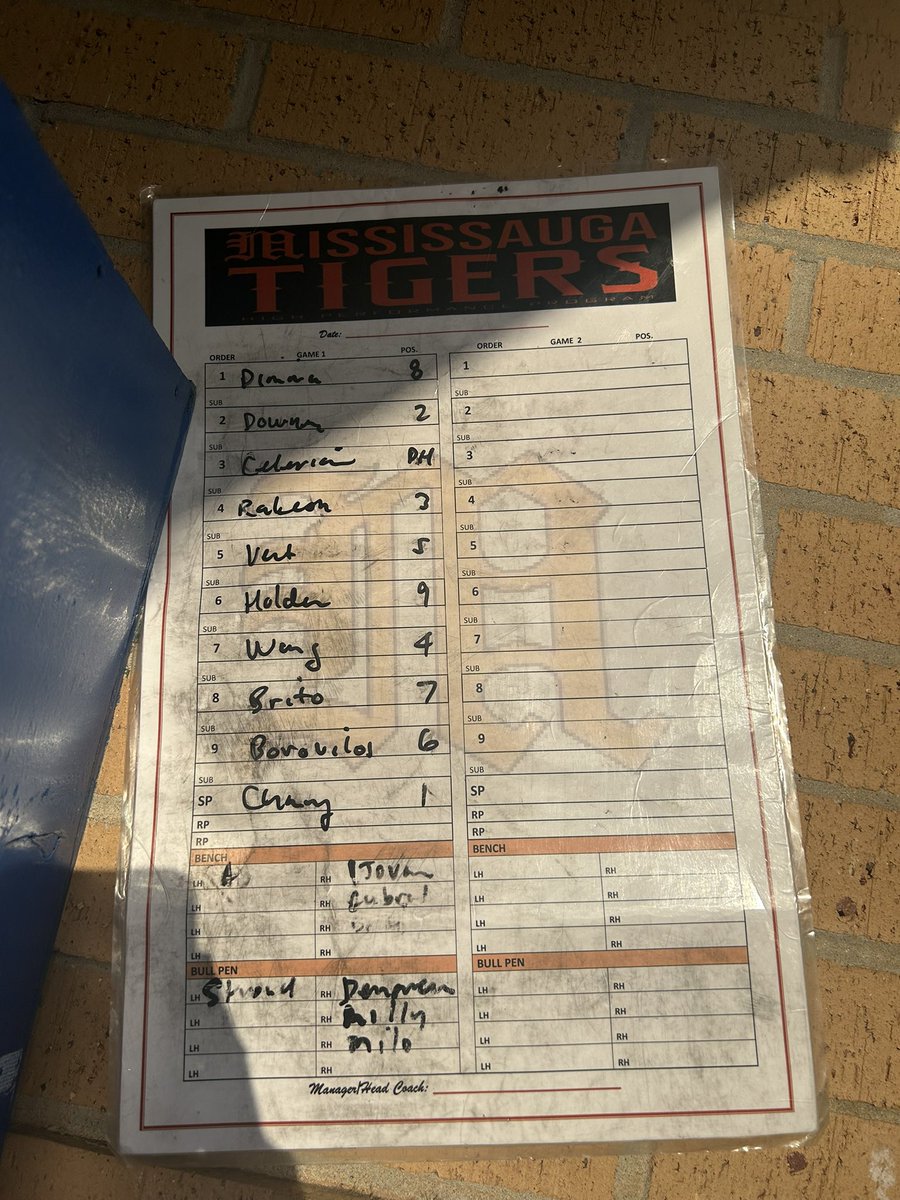 MISSISSAUGA
TIGERS
HIGH PERFORMANCE PROGRAM
Date:
ORDER GAME 1 POS.
1 8
SUB
2 2
SUB
3 DH
SUB
4 3
SUB
5 Vert 5
SUB
6 Holden 9
SUB
7 Wang 4
SUB
8 Brito 7
SUB
9 Borovilos 6
SUB
SP 1
RP
RP
BENCH
LH A RH Jovan
LH
LH
LH RH
BULL PEN
LH Stroud RH
LH RH Milly
LH RH Milo
LH RH
ORDER GAME 2 POS.
1
2
SUB
3
SUB
4
SUB
5
SUB
6
SUB
7
SUB
8
SUB
9
SUB
SP
RP
RP
BENCH
LH RH
LH RH
LH RH
LH RH
BULL PEN
LH RH
LH RH
LH RH
LH RH
Manager/Head Coach: